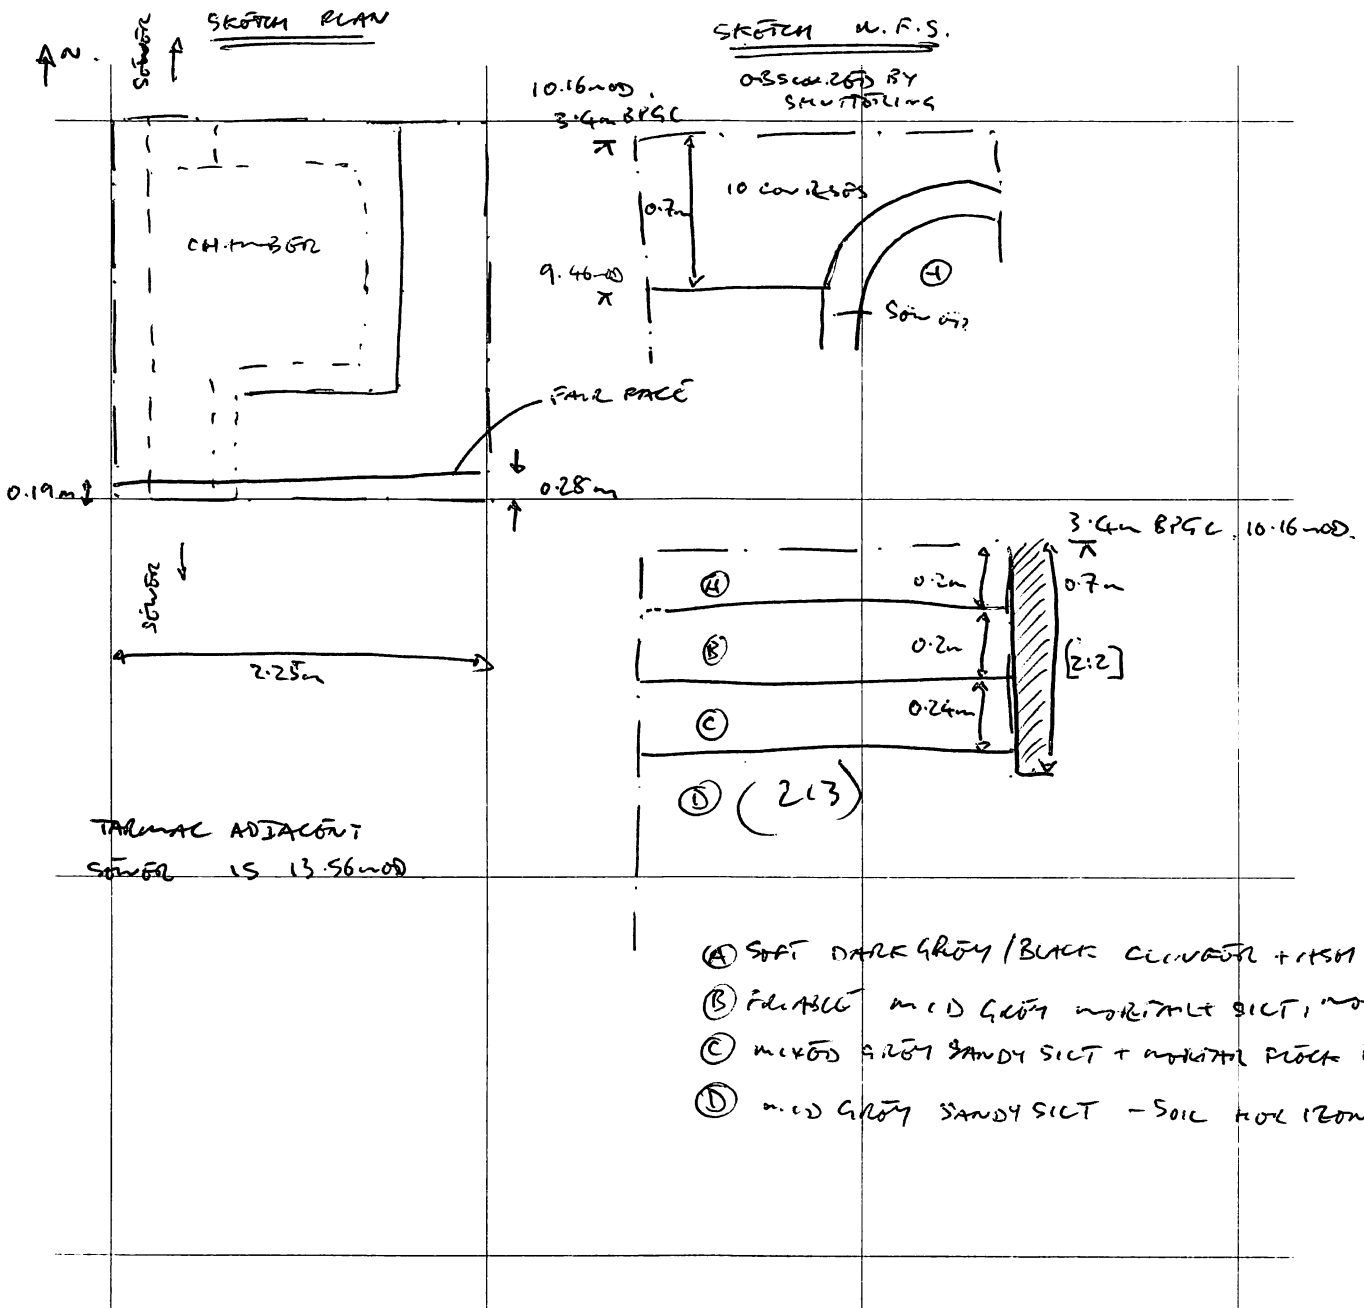 SKETCH PLAN
N.
SEWER
CHAMBER
FAIR FACE
0.19m
0.28m
SEWER
2.25m
TARMAC ADJACENT
SEWER IS 13.56mOD
SKETCH W.F.S.
OBSCURED BY
SHUTTERING
10.16mOD.
3.4m BPGL
0.7m
10 COURSES
9.46mOD
SEWER
3.4m BPGL. 10.16mOD.
A
0.2m
0.7m
B
0.2m
[2:2]
C
0.24m
D (213)
A SOFT DARK GREY/BLACK CLINKER + ASH
B FRIABLE MID GREY MORTAR + SILT,
C MIXED GREY SANDY SILT + MORTAR FLECK
D MID GREY SANDY SILT - SOIL HORIZON